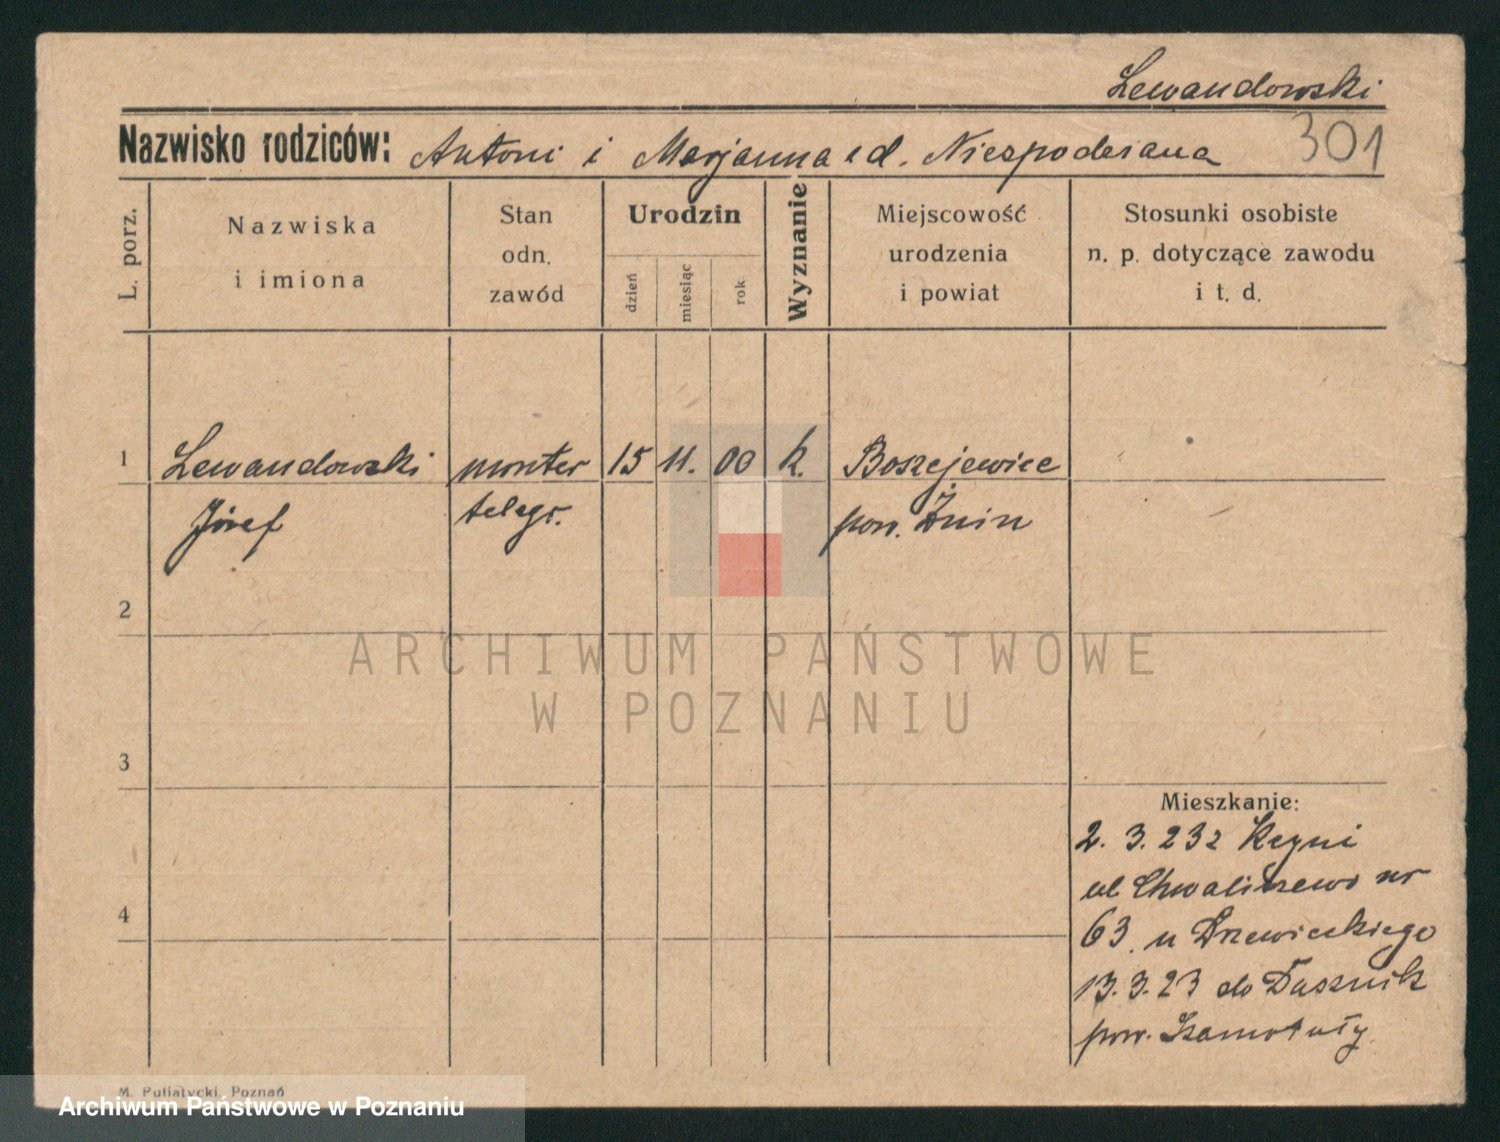 Lewandowski
Nazwisko rodziców: Antoni i Marjanna z d. Niespodziana 301
L. porz.
Nazwiska
i imiona
Stan
odn.
zawód
Urodzin
dzień
miesiąc
rok
Wyznanie
Miejscowość
urodzenia
i powiat
Stosunki osobiste
n. p. dotyczące zawodu
i t. d.
1 Lewandowski monter 15 11. 00 k. Boszejewice
Józef telegr. pow. Żnin
2
ARCHIWUM PAŃSTWOWE
W POZNANIU
3
Mieszkanie:
2. 3. 23 z Kcyni
ul Chwaliszewo nr
4
63 u Drzewieckiego
13.3.23 do Dusznik
pow. Szamotuły
M. Putiatycki, Poznań
Archiwum Państwowe w Poznaniu